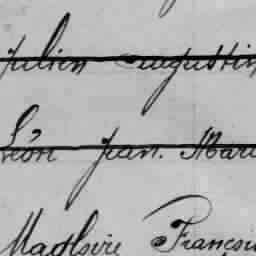 Julien Augustin
Léon Jean. Marie
Magloire François